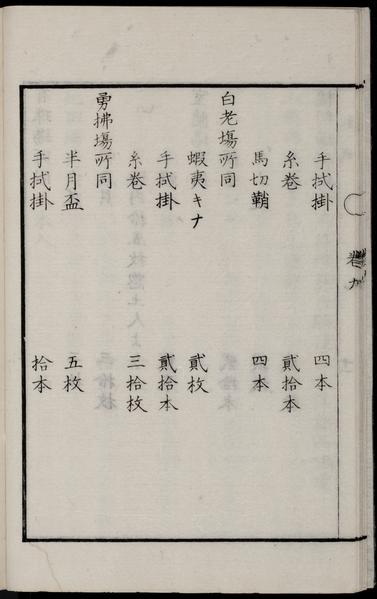 手拭掛 四本
糸巻 貳拾本
馬切鞘 四本
白老場所同
蝦夷キナ 貳枚
手拭掛 貳拾本
糸巻 三拾枚
勇拂場所同
半月盃 五枚
手拭掛 拾本